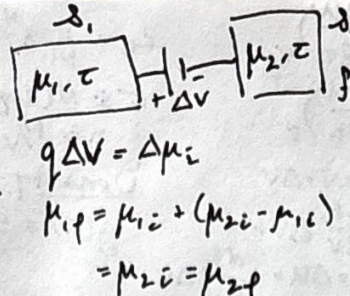 𝒮₁
μ₁, τ
+ ΔV
μ₂, τ
qΔV = Δμᵢ
μ₁f = μ₁ᵢ + (μ₂ᵢ - μ₁ᵢ)
= μ₂ᵢ = μ₂f